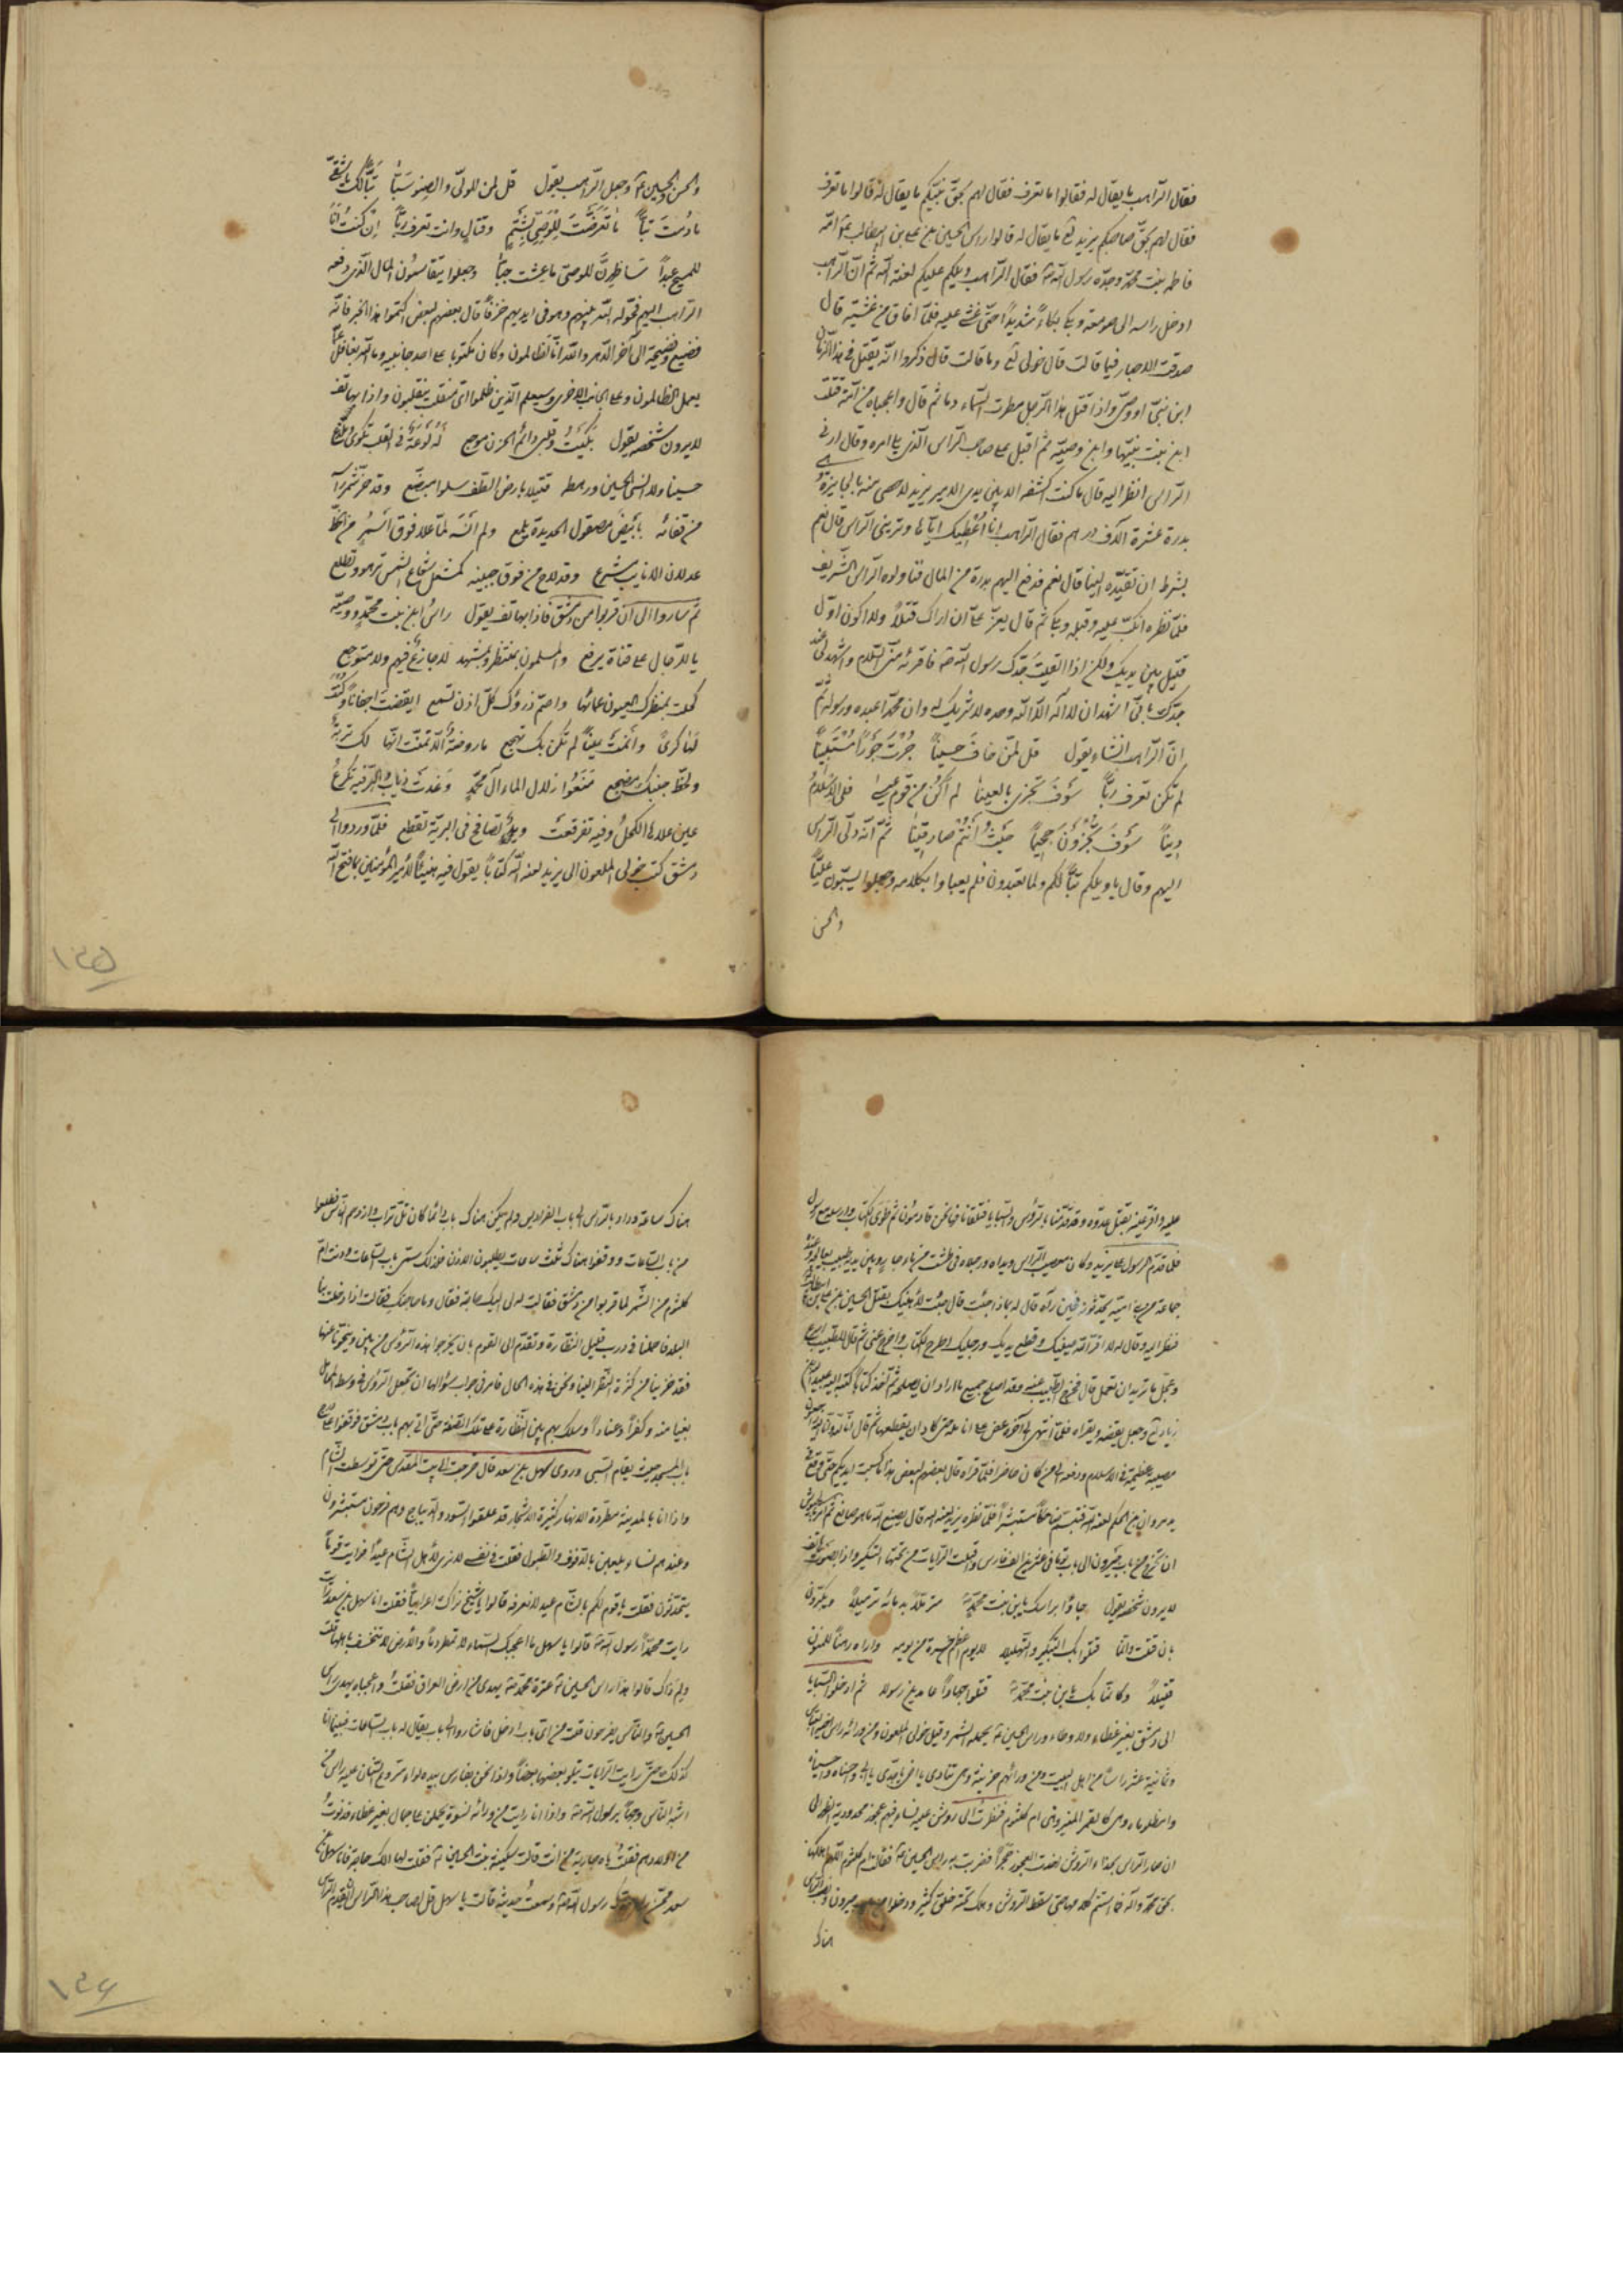 فقال الراهب ما يقال له فقالوا ما نعرف فقال لهم بحق نبيكم ما يقال له قالوا ما نعرف
فقال لهم بحق صاحبكم يزيد لع ما يقال له قالوا راس الحسين بن على بن ابيطالب ع امه
فاطمه بنت محمد وجده رسول الله ص فقال الراهب ويلكم عليكم لعنة الله ثم ان الراهب
ادخل راسه الى صومعته وبكا بكاءً شديداً حتى غشى عليه فلما افاق من غشيته قال
صدقت الاحبار فيما قالت قال خولى لع وما قالت قال ذكروا انه يقتل فى هذا الزمان
ابن نبى او وصى واذا قتل هذا الرجل مطرت السماء دما ثم قال واعجباه من امة قتلت
ابن بنت نبيها وابن وصيه ثم اقبل على صاحب الراس الذى يلى امره وقال ارنى
الراس انظر اليه قال ما كنت اكشفه الا بين يدى الامير يزيد لاحصى منه بالجايزة
بدرة عشرة آلاف درهم فقال الراهب انا اعطيك اياها وترينى الراس قال نعم
بشرط ان تعيده الينا قال نعم فدفع اليهم بدرة من المال فناولوه الراس الشريف
فلما نظره انكب عليه وقبله وبكا ثم قال يعز على ان اراك قتيلاً ولا اكون اول
قتيل بين يديك ولكن اذا لقيت جدك رسول الله ص فاقرئه منى السلام واشهد لى عند
جدك بانى اشهد ان لا اله الا الله وحده لا شريك له وان محمدا عبده ورسوله ثم
ان الراهب انشاء يقول قل لمن خاف حسيناً جرت جوراً مستبيناً
لم تكن تعرف ربّاً سوف تجزى يا لعينا لم اكن من قوم عيسى فلى الاسلام
ديناً سوف تجزون جحيماً حيث انتم صارقينا ثم انه دلى الراس
اليهم وقال يا ويلكم تبّاً لكم ولما تعبدون فلم يعباوا بكلامه وجعلوا يسبون عليّاً
والحسن
والحسن والحسين ع وجعل الراهب يقول قل لمن للمولى والصنو سبّا تبّا لك يا شقىّ
ما تعرضت للوصى بشتم وقتال وانت تعرف ربّاً ان كنت انا
للمسيح عبداً سَاظهرن للوصى ما عشت حبّاً وجعلوا يتقاسمون المال الذى دفعه
الراهب اليهم فحوله الله بينهم وهو فى ايديهم خزفاً قال بعضهم لبعض اكتموا هذا الخبر فانه
فضيع وفضيحة الى آخر الدهر والله انا لظالمون وكان مكتوبا على احد جانبيه وما الله بغافل عما
يعمل الظالمون وعلى الجانب الاخرى وسيعلم الذين ظلموا اى منقلب ينقلبون واذا بهاتف
لا يرون شخصه يقول بكيت وقلبى دائم الحزن موجع له لوعة فى القلب تكوى وتلذع
حسينا ولا انسى الحسين ورهطه قتيلا بارض الطف سلوا مبضع وقد حز شمر راسه
من قفائه بابيض مصقول الحديدة يلمع ولم انسَه لما علا فوق اسمر من الخط
عدلان الانابيب مشرع وقد لاح من فوق جبينه كمشعل شعاع الشمس تزهو وتطلع
ثم ساروا الى ان قربوا من دمشق فاذا بهاتف يقول راس ابن بنت محمد ووصيه
يا للرجال على قناة يرفع والمسلمون بمنظر وبمشهد لا جازع فيهم ولا متوجع
كحلت بمنظرك العيون عمائها واصم رزؤك كل اذن تسمع ايقضت اجفاناً وكنت
لها كرىً وانمت عيناً لم تكن بك تهجع ما روضة الا تمنت انها لك تربة
ولخط جنبك مضجع منعوا زلال الماء آل محمد وغدت ذياب البر فيه تكرع
عين علاها الكحل وفيه تفرقعت ويد تصافح فى البرية تقطع فلما وردوا الى
دمشق كتب خولى الملعون الى يزيد لعنه الله كتاباً يقول فيه هنيئاً لامير المؤمنين بما فتح الله
١٣٥
عليه واقر عينه بقتل عدوه وقد قدمنا بالرؤس والسبايا فتلقانا فها نحن قادمون ثم طوى الكتاب وارسله مع رسول
فلما قدم الرسول على يزيد وكان معصب الراس ويداه ورجلاه فى طشت من ماء حار وبين يديه طبيب يعالجه وعنده
جماعة من بنى امية يحدثونه فحين رآه قال له بماذا جئت قال جئت لاهنيك بقتل الحسين بن على بن ابيطالب
فنظر اليه وقال له لا اقر الله عينيك وقطع يديك ورجليك اطرح الكتاب واخرج عنى ثم قال للطبيب اسرع
وعجل ما تريد ان تعمل قال فخرج الطبيب عنه وقد اصلح جميع ما اراد ان يصلحه ثم اخذ كتاباً كتبه اليه عبيدالله بن
زياد لع وجعل يفضه ويقراه فلما انتهى الى آخره عض على انامله حتى كاد ان يقطعها ثم قال انا لله وانا اليه راجعون
مصيبة عظيمة فى الاسلام ودفعه الى من كان حاضرا فلما قراه قال بعضهم لبعض هذا ما كسبت ايديكم حتى وقع فى
يد مروان بن الحكم لعنه الله فتبسم ضاحكاً مستبشراً فلما نظره يزيد لعنه الله قال يصنع الله ما هو صانع ثم امر بالجيوش
ان تخرج من باب جيرون الى باب توما فى عشرين الف فارس واقبلت الرايات من تحتها التكبير واذا بصوت هاتف
لا يرون شخصه يقول جاؤا براسك يا بن بنت محمد ص متزملاً بدمائه تزميلا ويكبرون
بان قتلت وانما قتلوا بك التكبير والتهليلا لا يوم اعظم حسرة من يومه واراه رهناً للمنون
قتيلاً وكانما بك يا بن بنت محمد ص قتلوا جهاراً عامدين رسولا ثم ادخلوا السبايا
الى دمشق بغير غطاء ولا وطاء وراس الحسين ع يحمله الشمر وقيل خولى الملعون ومن ورائه راس اخيه العباس
وثمانية عشر راساً من اهل البيت ومن ورائهم حزينة وهى تنادى يا اخى يا جدى يا ابى واحسناه واحسيناه
واعلياه وهى كالقمر المنير وهى ام كلثوم فنظرت الى روشن عليه نساء فيهم عجوز محدودبة الظهر الى
ان صار الراس بحذاء الروشن نهضت العجوز حجراً فضربت به راس الحسين ع فقالت ام كلثوم اللهم اهلكها
بحق محمد وآله فما استتم كلامها حتى سقط الروشن وهلك تحته خلق كثير ودخلوا من باب جيرون ونصب الراس
هناك
هناك ساعة وداروا بالراس الى باب الفراديس ولم يكن هناك باب وانما كان تل تراب وازدحم الناس فعدلوا
من باب الساعات ووقفوا هناك ثلث ساعات يطلبون الاذن فلذلك سمى باب الساعات ودنت ام
كلثوم من الشمر لما قربوا من دمشق فقالت له لى اليك حاجة فقال وما حاجتك فقالت اذا دخلت بنا
البلد فاحملنا فى درب قليل النظارة وتقدم الى القوم بان يخرجوا هذه الرؤس من بين وينحونا عنها
فقد خزينا من كثرة النظر الينا ونحن فى هذه الحال فامر فى جواب سؤالها ان تجعل الرؤس فى وسط المحامل
بغيا منه وكفراً وعناداً وسلك بهم بين النظارة على تلك الصفة حتى اتى بهم باب دمشق فوقفوا على درج
باب المسجد حيث يقام السبى وروى سهل بن سعد قال خرجت الى بيت المقدس حتى توسطت الشام
واذا انا بالمدينة مطردة الانهار كثيرة الاشجار قد علقوا الستور والديباج وهم فرحون مستبشرون
وعندهم نساء يلعبن بالدفوف والطبول فقلت فى نفسى لا نرى لاهل الشام عيداً فرايت قوماً
يتحدثون فقلت يا قوم لكم بالشام عيد لا نعرفه قالوا يا شيخ نراك اعرابيّاً فقلت انا سهل بن سعد قد
رايت محمداً رسول الله ص قالوا يا سهل ما اعجبك السماء لا تمطر دماً والارض لا تنخسف باهلها قلت
ولم ذاك قالوا هذا راس الحسين ع عترة محمد ص يهدى من ارض العراق فقلت واعجباه يهدى راس
الحسين ع والناس يفرحون قلت من اى باب ادخل فاشاروا الى باب يقال له باب الساعات فبينما انا
كذلك حتى رايت الرايات يتلو بعضها بعضاً واذا نحن بفارس بيده لواء منزوع السنان عليه راس من
اشبه الناس وجهاً برسول الله ص واذا انا رايت من ورائه نسوة يحملن على جمال بغير غطاء فدنوت
من اولاهم فقلت يا جارية من انت قالت سكينة بنت الحسين ع فقلت لها الك حاجة فانا سهل بن
سعد ممن راى جدك رسول الله ص وسمعت حديثه قالت يا سهل قل لصاحب هذا الراس ان يقدم الراس
١٣٦